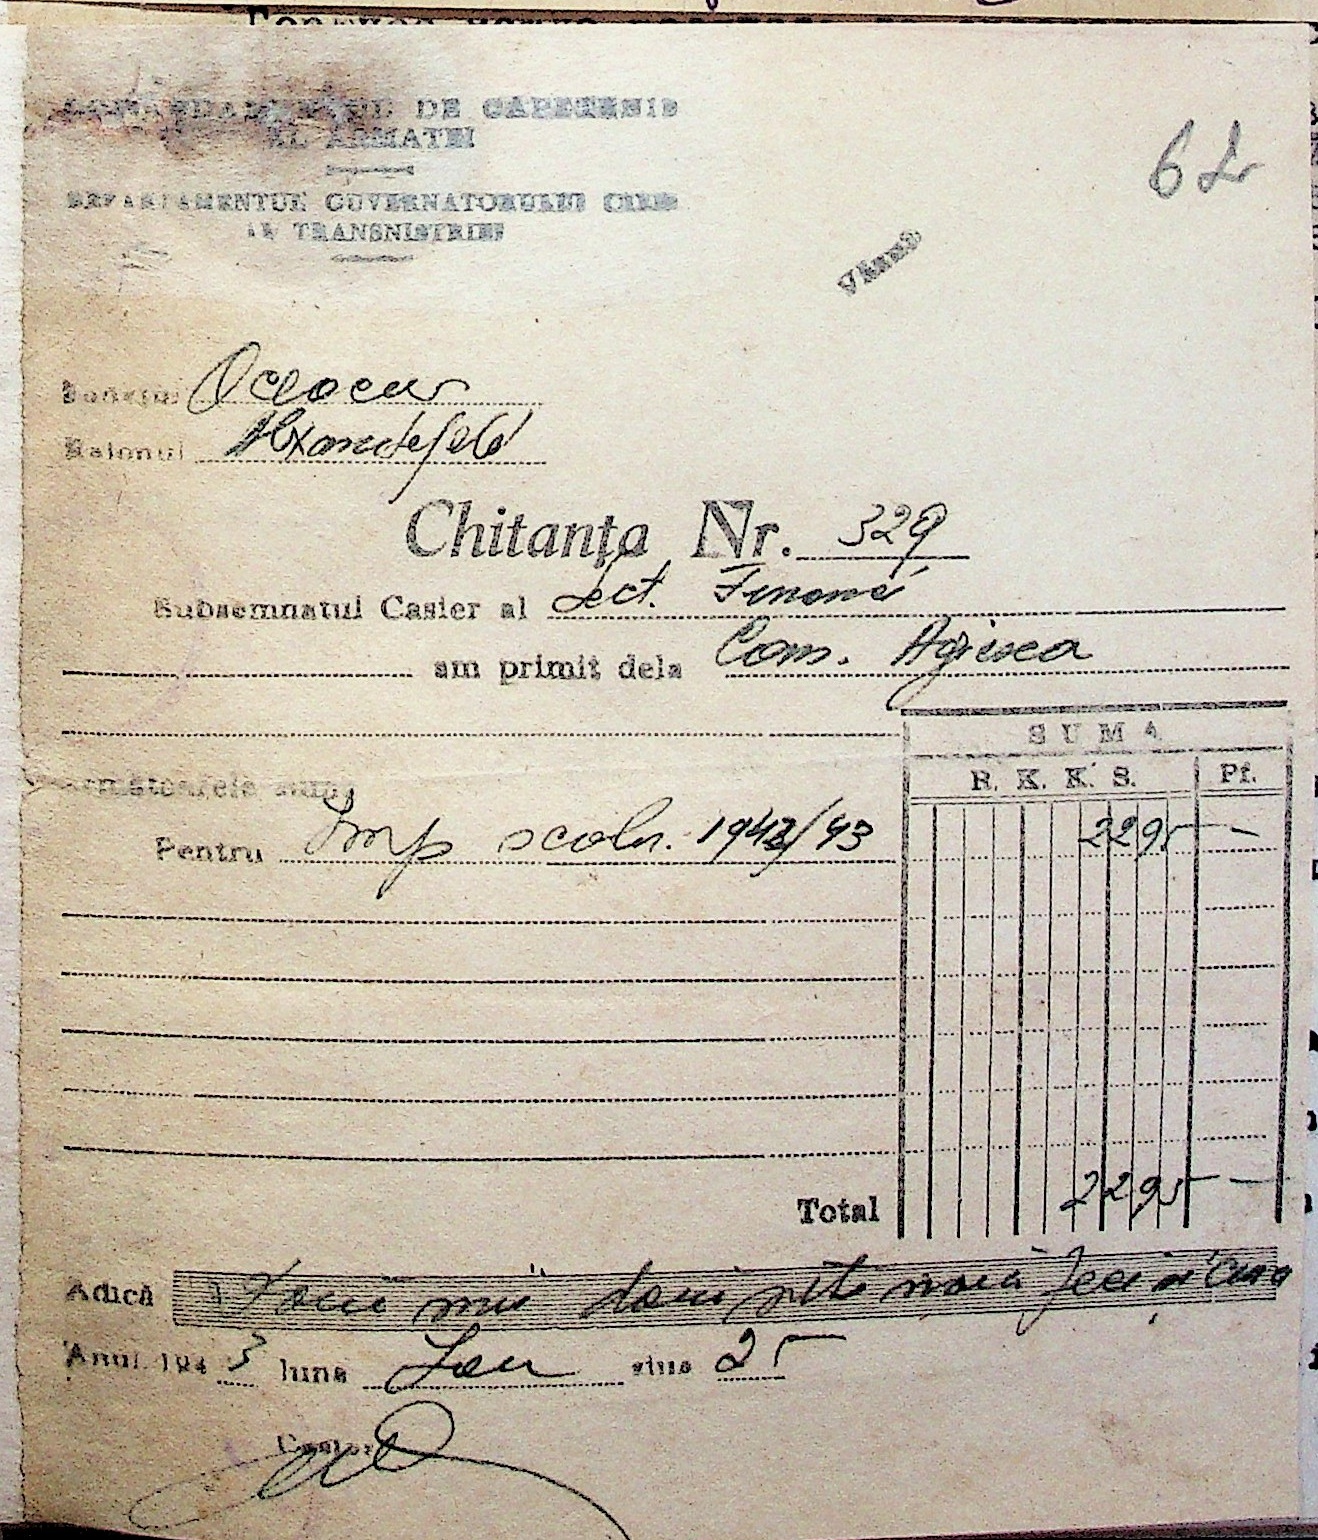 COMANDAMENTUL DE CAPETENIE
AL ARMATEI
DEPARTAMENTUL GUVERNATORULUI CIVIL
AL TRANSNISTRIEI
62
Județul Oceacov
Raionul
Chitanța Nr. 329
Subsemnatul Casier al Sect. Financi
am primit dela Com. Agisca
SUMA
următoarele sume
R. K. K. S. Pf.
Pentru Imp scolar. 1942/43 2295 —
Total 2295 —
Adică Două mii două sute nouă zeci și cinci
Anul 1943 luna Ian ziua 25
Casier